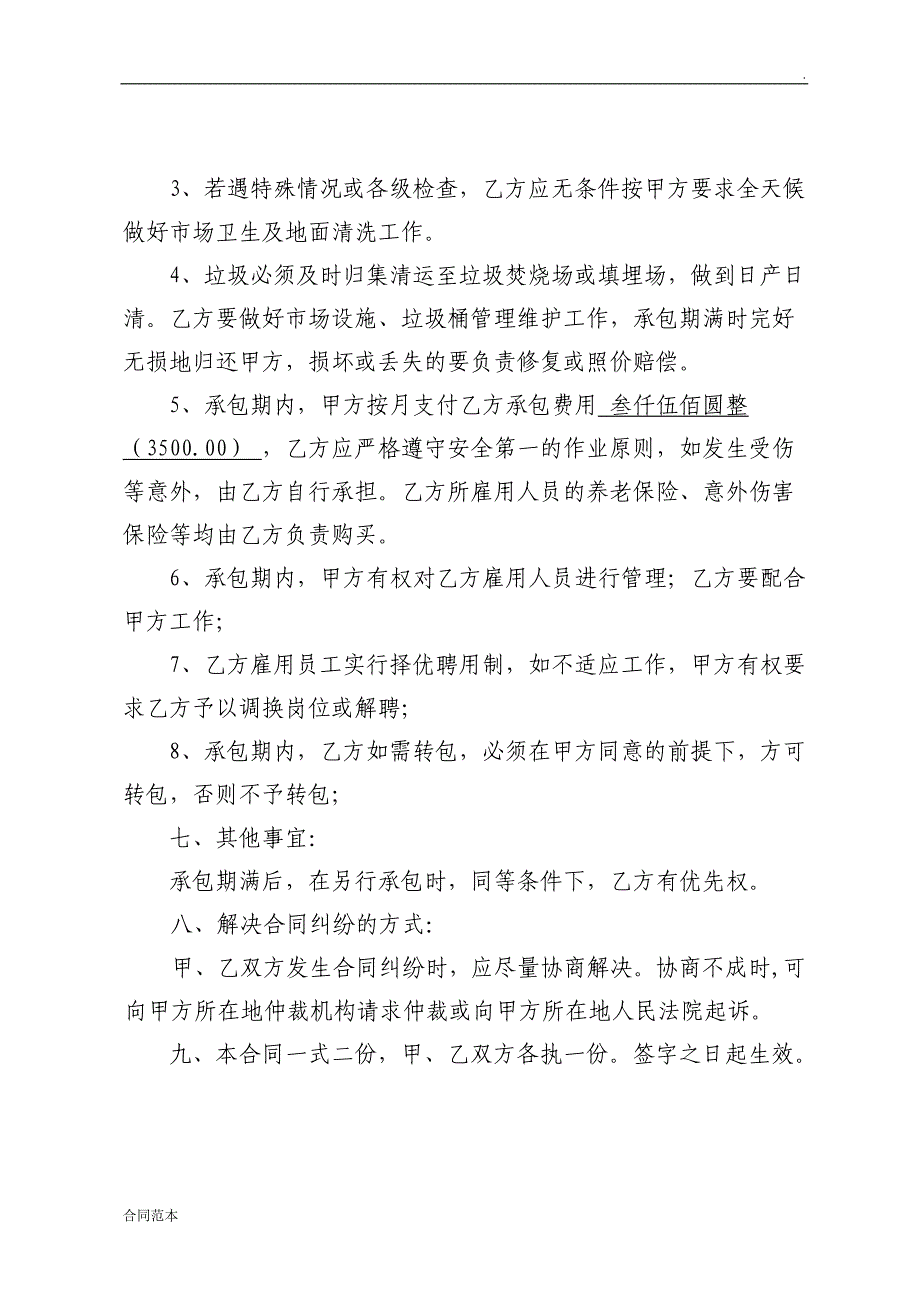 3、若遇特殊情况或各级检查，乙方应无条件按甲方要求全天候
做好市场卫生及地面清洗工作。
4、垃圾必须及时归集清运至垃圾焚烧场或填埋场，做到日产日
清。乙方要做好市场设施、垃圾桶管理维护工作，承包期满时完好
无损地归还甲方，损坏或丢失的要负责修复或照价赔偿。
5、承包期内，甲方按月支付乙方承包费用 叁仟伍佰圆整
（3500.00），乙方应严格遵守安全第一的作业原则，如发生受伤
等意外，由乙方自行承担。乙方所雇用人员的养老保险、意外伤害
保险等均由乙方负责购买。
6、承包期内，甲方有权对乙方雇用人员进行管理；乙方要配合
甲方工作；
7、乙方雇用员工实行择优聘用制，如不适应工作，甲方有权要
求乙方予以调换岗位或解聘；
8、承包期内，乙方如需转包，必须在甲方同意的前提下，方可
转包，否则不予转包；
七、其他事宜：
承包期满后，在另行承包时，同等条件下，乙方有优先权。
八、解决合同纠纷的方式：
甲、乙双方发生合同纠纷时，应尽量协商解决。协商不成时,可
向甲方所在地仲裁机构请求仲裁或向甲方所在地人民法院起诉。
九、本合同一式二份，甲、乙双方各执一份。签字之日起生效。
合同范本